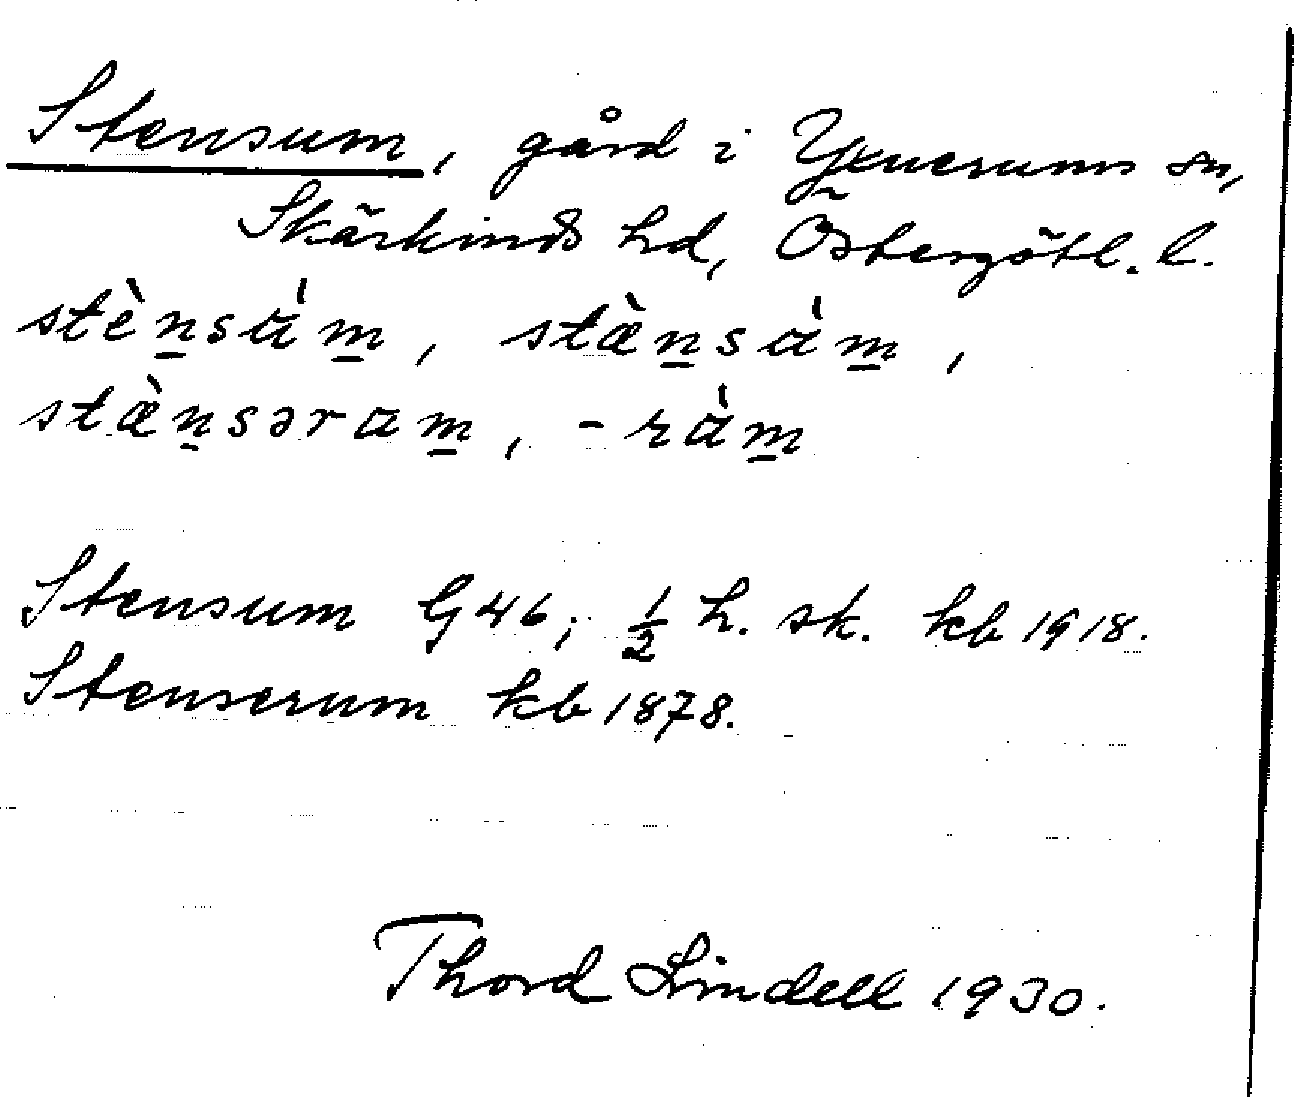 Stensum, gård i Yxnerums sn,
Skärkinds hd, Östergötl. l.
stèn̠sàm̠, stæ̀n̠sàm̠,
stæ̀n̠səram̠, -ràm̠
Stensum G46; ½ h. sk. kb 1918.
Stenserum kb 1878.
Thord Lindell 1930.